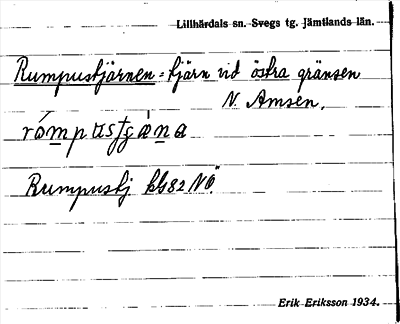 Lillhärdals sn. Svegs tg. Jämtlands län.
Rumpustjärnen = tjärn vid östra gränsen
N. Amsen.
Rumpustj kbl 82 NO.
Erik Eriksson 1934.